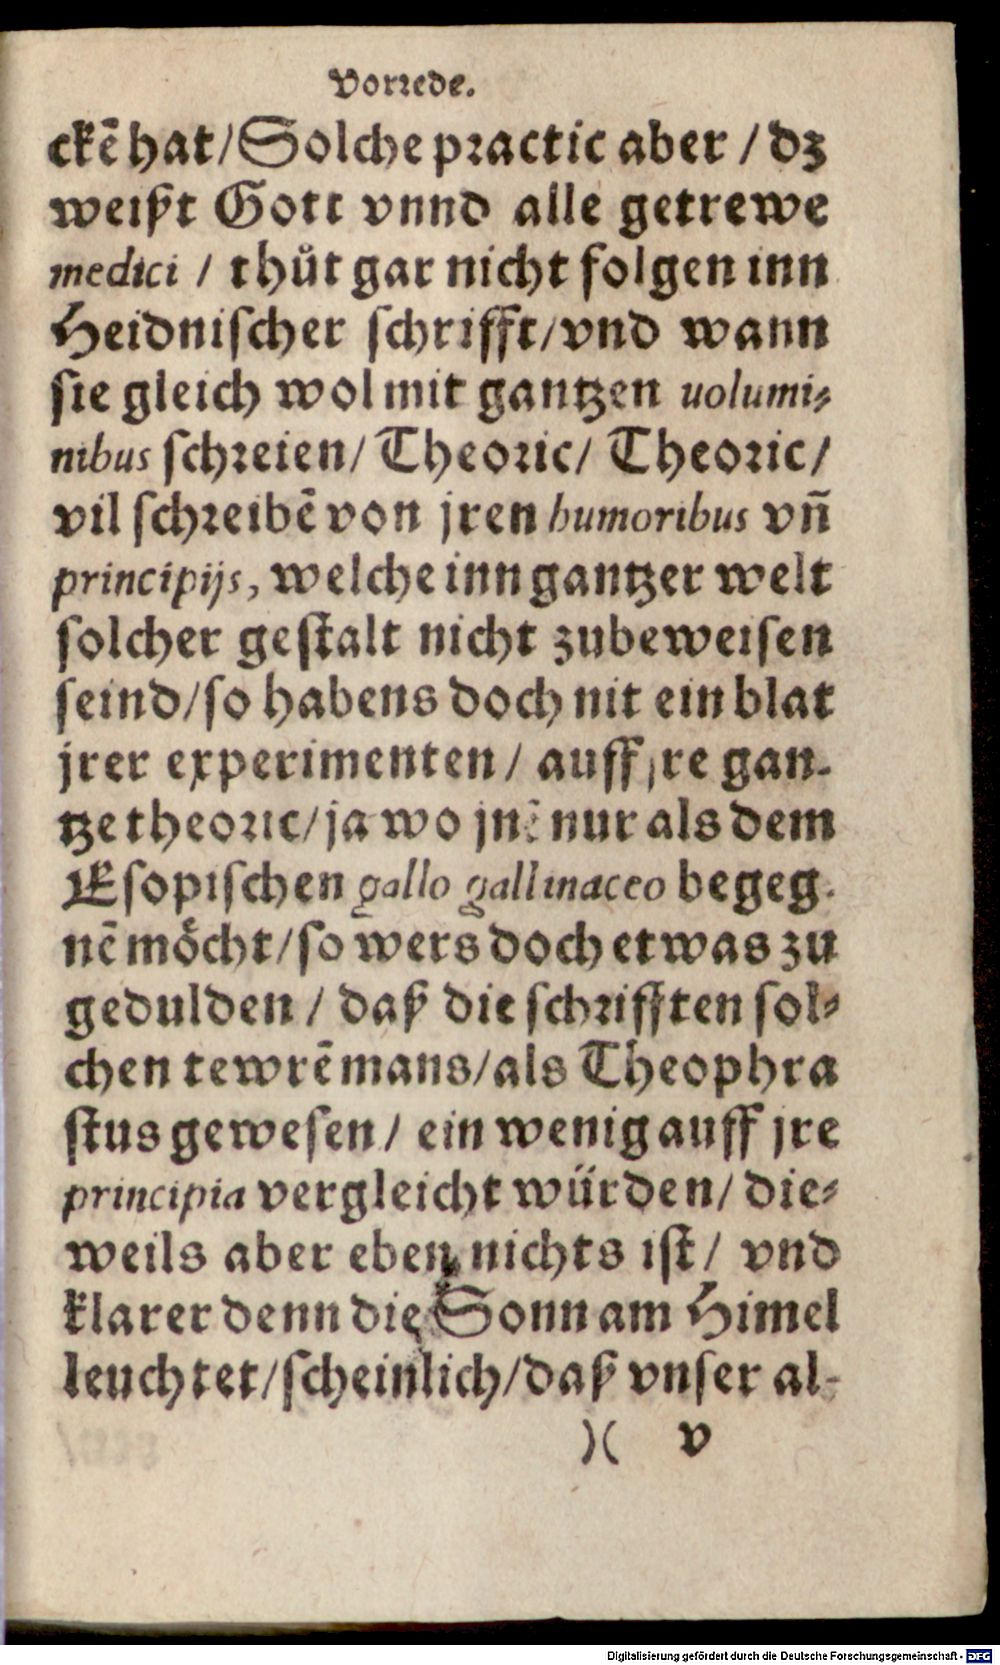 Vorrede.
ckẽ hat/ Solche practic aber / dz
weißt Gott vnnd alle getrewe
medici / thůt gar nicht folgen inn
Heidnischer schrifft/ vnd wann
sie gleich wol mit gantzen uolumi⸗
nibus schreien/ Theoric/ Theoric/
vil schreibẽ von jren humoribus vñ
principijs, welche inn gantzer welt
solcher gestalt nicht zubeweisen
seind/ so habens doch nit ein blat
jrer experimenten / auff jre gan-
tze theoric/ ja wo jnẽ nur als dem
Esopischen gallo gallinaceo begeg-
nẽ mőcht/ so wers doch etwas zu
gedulden / daß die schrifften sol⸗
chen tewrẽ mans/ als Theophra
stus gewesen / ein wenig auff jre
principia vergleicht würden/ die⸗
weils aber eben nichts ist/ vnd
klarer denn die Sonn am Himel
leuchtet/ scheinlich/ daß vnser al-
)( v
Digitalisierung gefördert durch die Deutsche Forschungsgemeinschaft - DFG